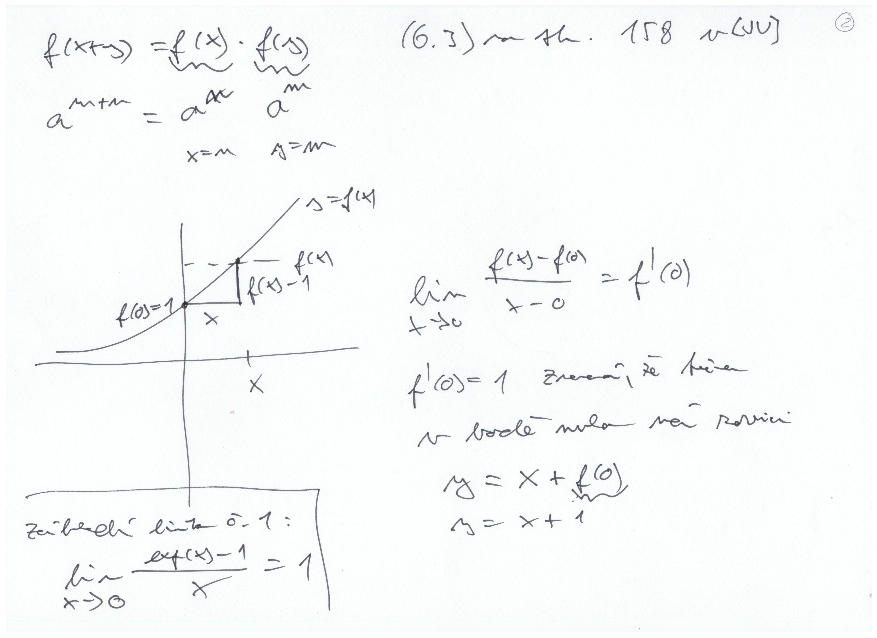 f(x+y) = f(x) · f(y)
a^{m+n} = a^{m} a^{n}
x=m y=n
(6.3) na str. 158 v [VV]
2
y=f(x)
f(x)
f(x)-1
f(0)=1
x
x
lim x→0 (f(x)-f(0))/(x-0) = f'(0)
f'(0)=1 znamená, že tečna
v bodě nula má rovnici
y = x + f(0)
y = x + 1
Základní limita č. 1:
lim x→0 (exp(x)-1)/x = 1